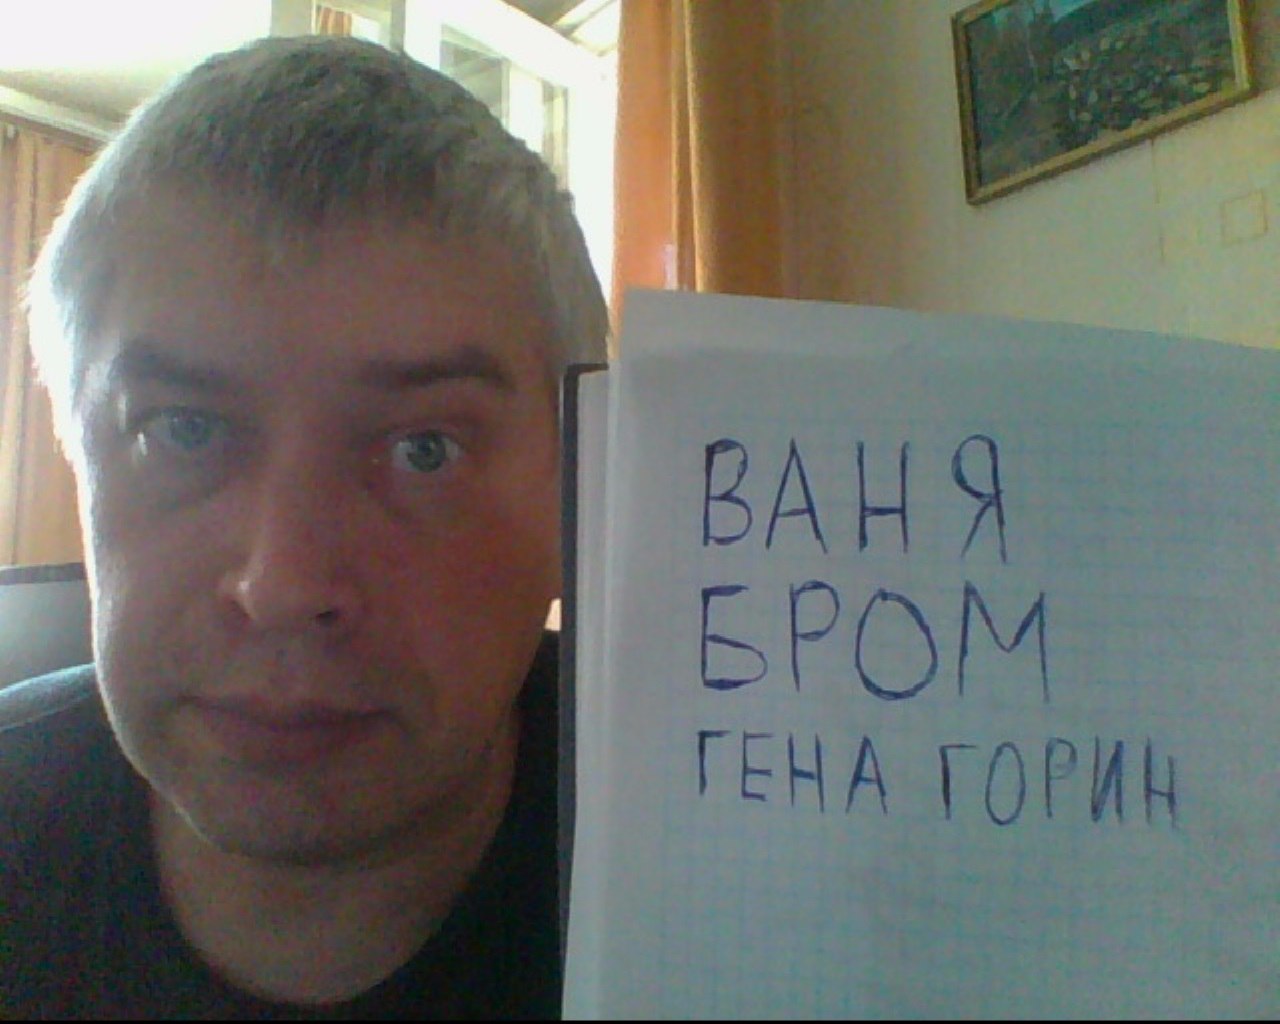 ВАНЯ
БРОМ
ГЕНА ГОРИН